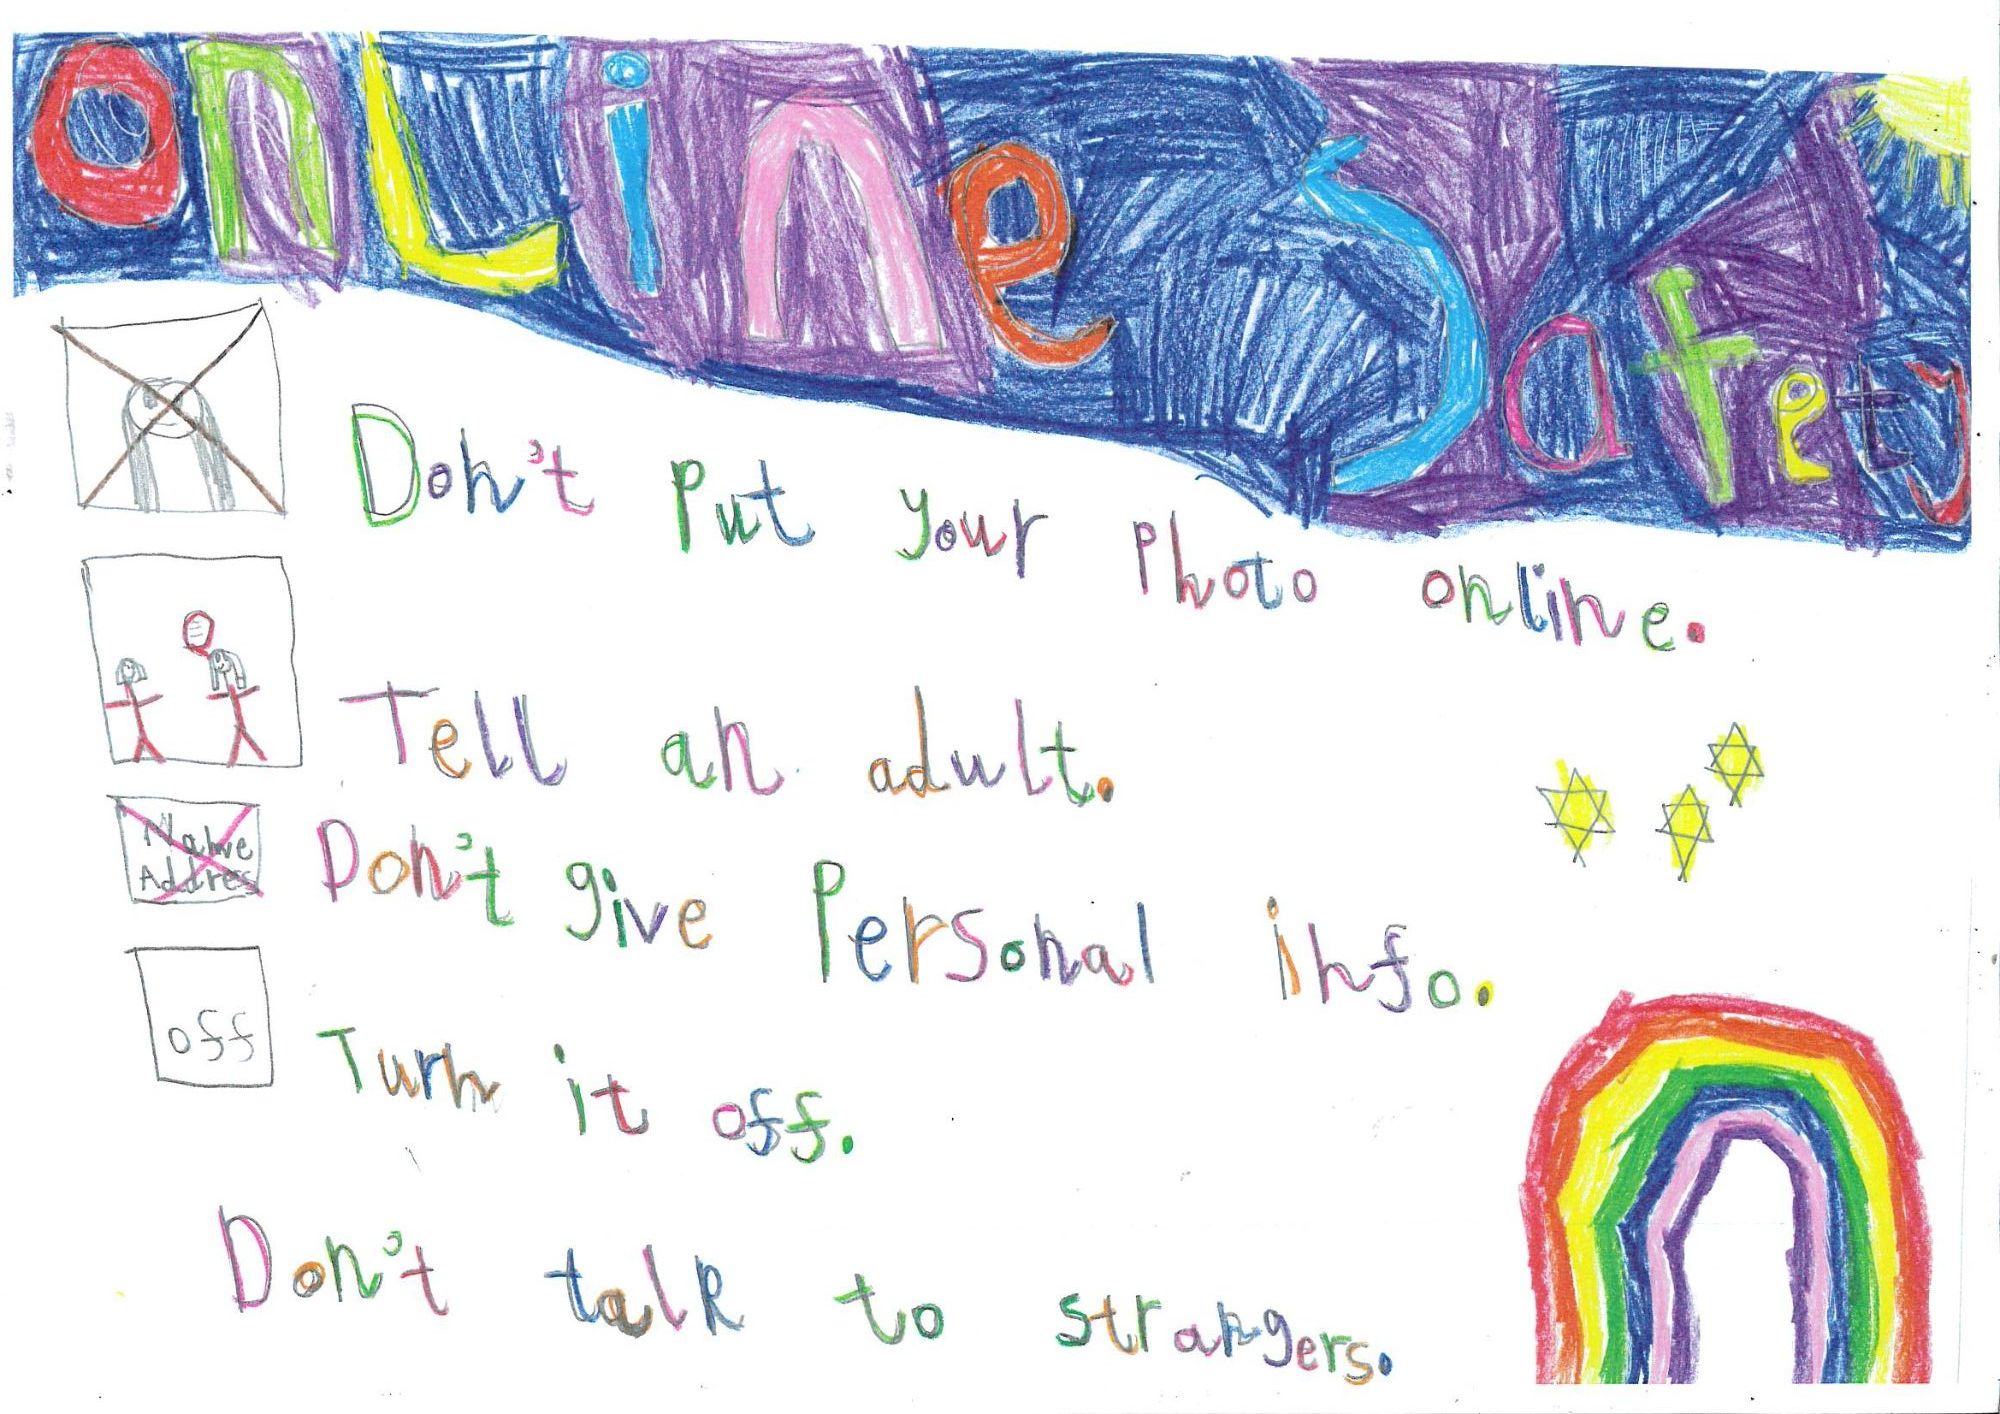 onLine Safety
Don't put your photo online.
Tell an adult.
Name
Address
Don't give Personal info.
off
Turn it off.
Don't talk to strangers.